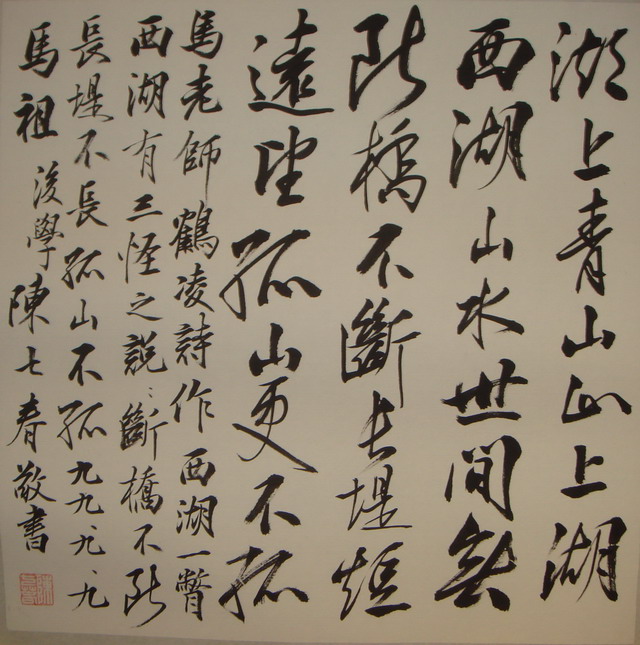 湖上青山山上湖
西湖山水世間無
断橋不斷長堤短
遠望孤山更不孤
馬老師鶴凌詩作西湖一瞥
西湖有三怪之說：斷橋不断
長堤不長孤山不孤九九、九、九
馬祖後學陳七春敬書